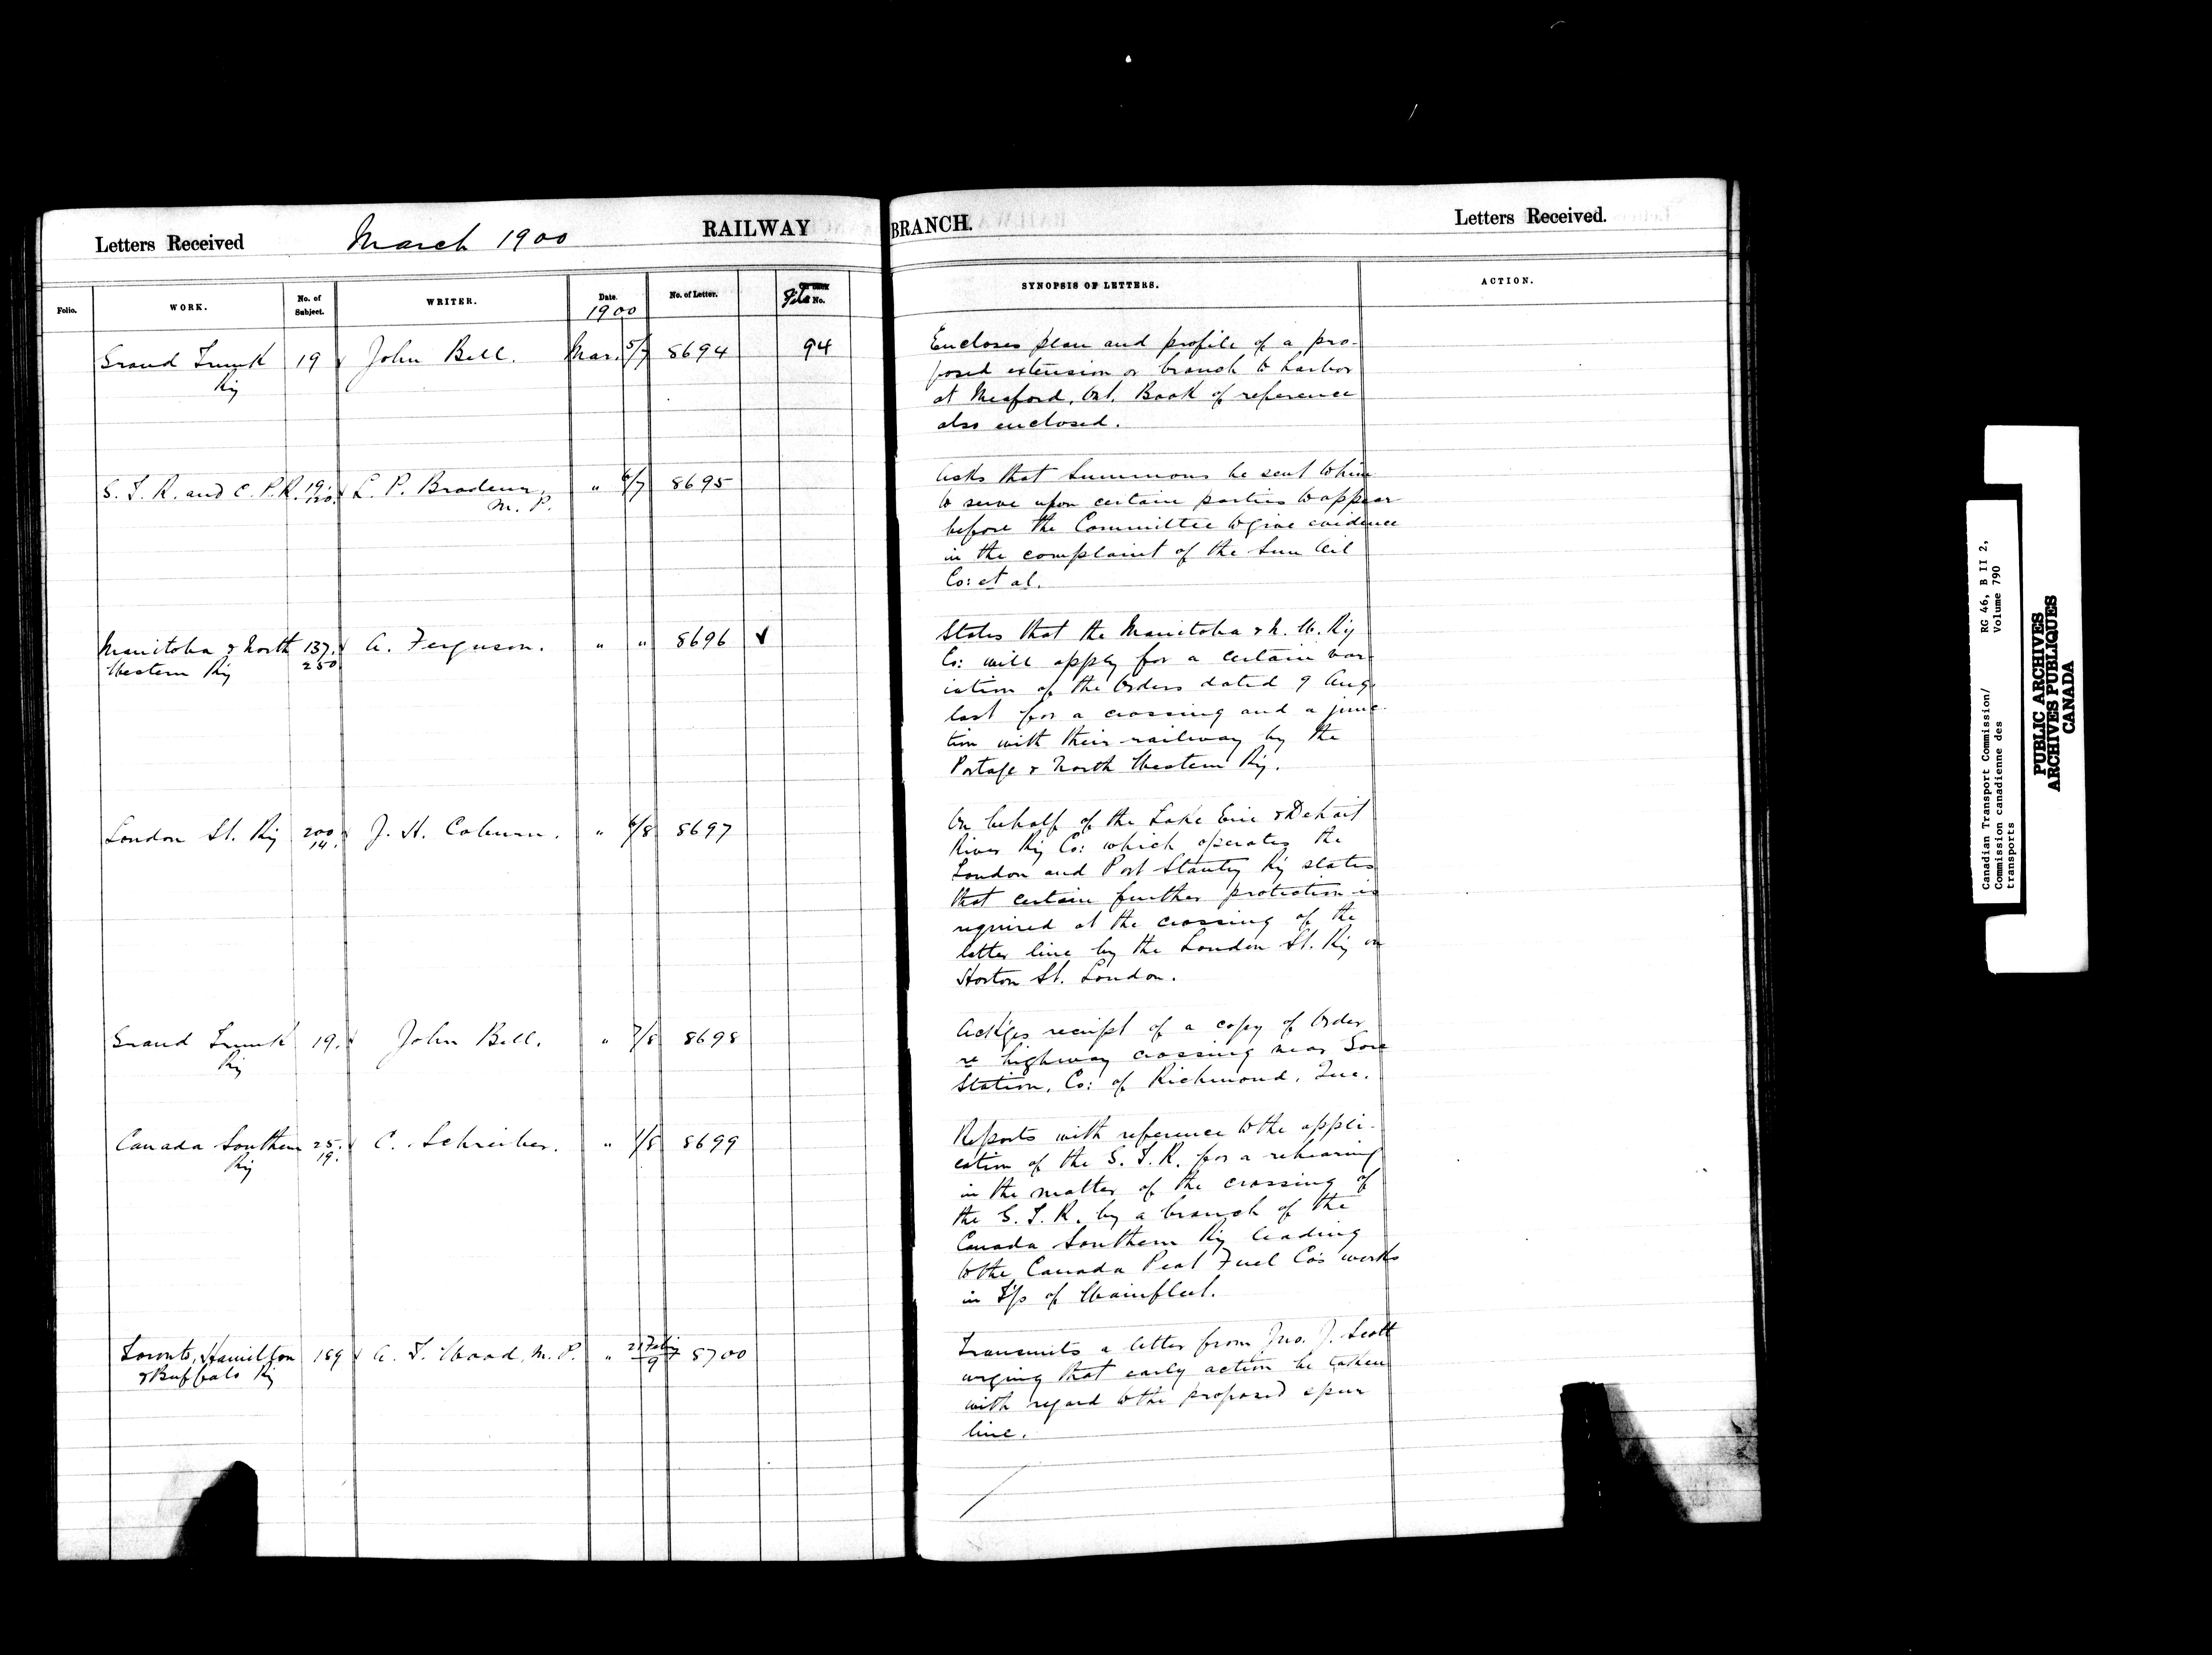 Letters Received
March 1900
RAILWAY
BRANCH.
Letters Received.
Folio.
WORK.
No. of Subject.
WRITER.
Date.
1900
No. of Letter.
File No.
SYNOPSIS OF LETTERS.
ACTION.
Grand Trunk
Ry
19
John Bell.
Mar. 5/7
8694
94
Encloses plan and profile of a pro-
posed extension or branch to harbor
at Meaford, Ont. Book of reference
also enclosed.
G. T. R. and C. P. R.
19.
120.
L. P. Brodeur,
M. P.
" 6/7
8695
Asks that summons be sent to him
to serve upon certain parties to appear
before the Committee to give evidence
in the complaint of the Sun Oil
Co: et al.
Manitoba & North
Western Ry
137.
250
A. Ferguson.
" "
8696 ✓
States that the Manitoba & N. W. Ry
Co: will apply for a certain var-
iation of the Orders dated 9 Aug
last for a crossing and a junc-
tion with their railway by the
Portage & North Western Ry.
London St. Ry
200
14.
J. H. Coburn.
" 6/8
8697
On behalf of the Lake Erie & Detroit
River Ry Co: which operates the
London and Port Stanley Ry states
that certain further protection is
required at the crossing of the
latter line by the London St. Ry on
Horton St. London.
Grand Trunk
Ry
19.
John Bell.
" 7/8
8698
Ackges receipt of a copy of Order
re highway crossing near
Station, Co: of Richmond, Que.
Canada Southern
Ry
25.
19.
C. Schreiber.
" 1/8
8699
Reports with reference to the appli-
cation of the G. T. R. for a rehearing
in the matter of the crossing of
the G. T. R. by a branch of the
Canada Southern Ry leading
to the Canada Peat Fuel Co's works
in T/p of Wainfleet.
Toronto, Hamilton
& Buffalo Ry
189
A. T. Wood, M. P.
" 21 Feby
9
8700
Transmits a letter from Jno. J. Scott
urging that early action be taken
with regard to the proposed spur
line.
Canadian Transport Commission/
Commission canadienne des
transports
RG 46, B II 2,
Volume 790
PUBLIC ARCHIVES
ARCHIVES PUBLIQUES
CANADA